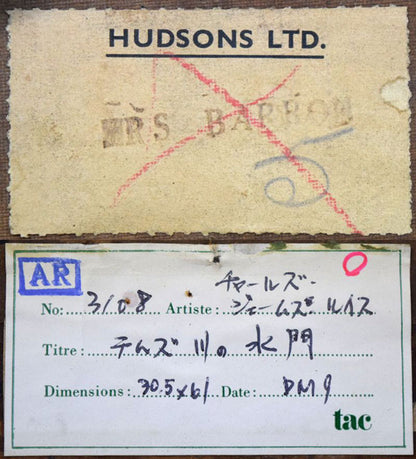 HUDSONS LTD.
MRS BARRON
AR
チャールズ・
No: 3108 Artiste: ジェームズ・ルイス
Titre: テムズ川の水門
Dimensions: 30.5×61 Date: DM9
tac